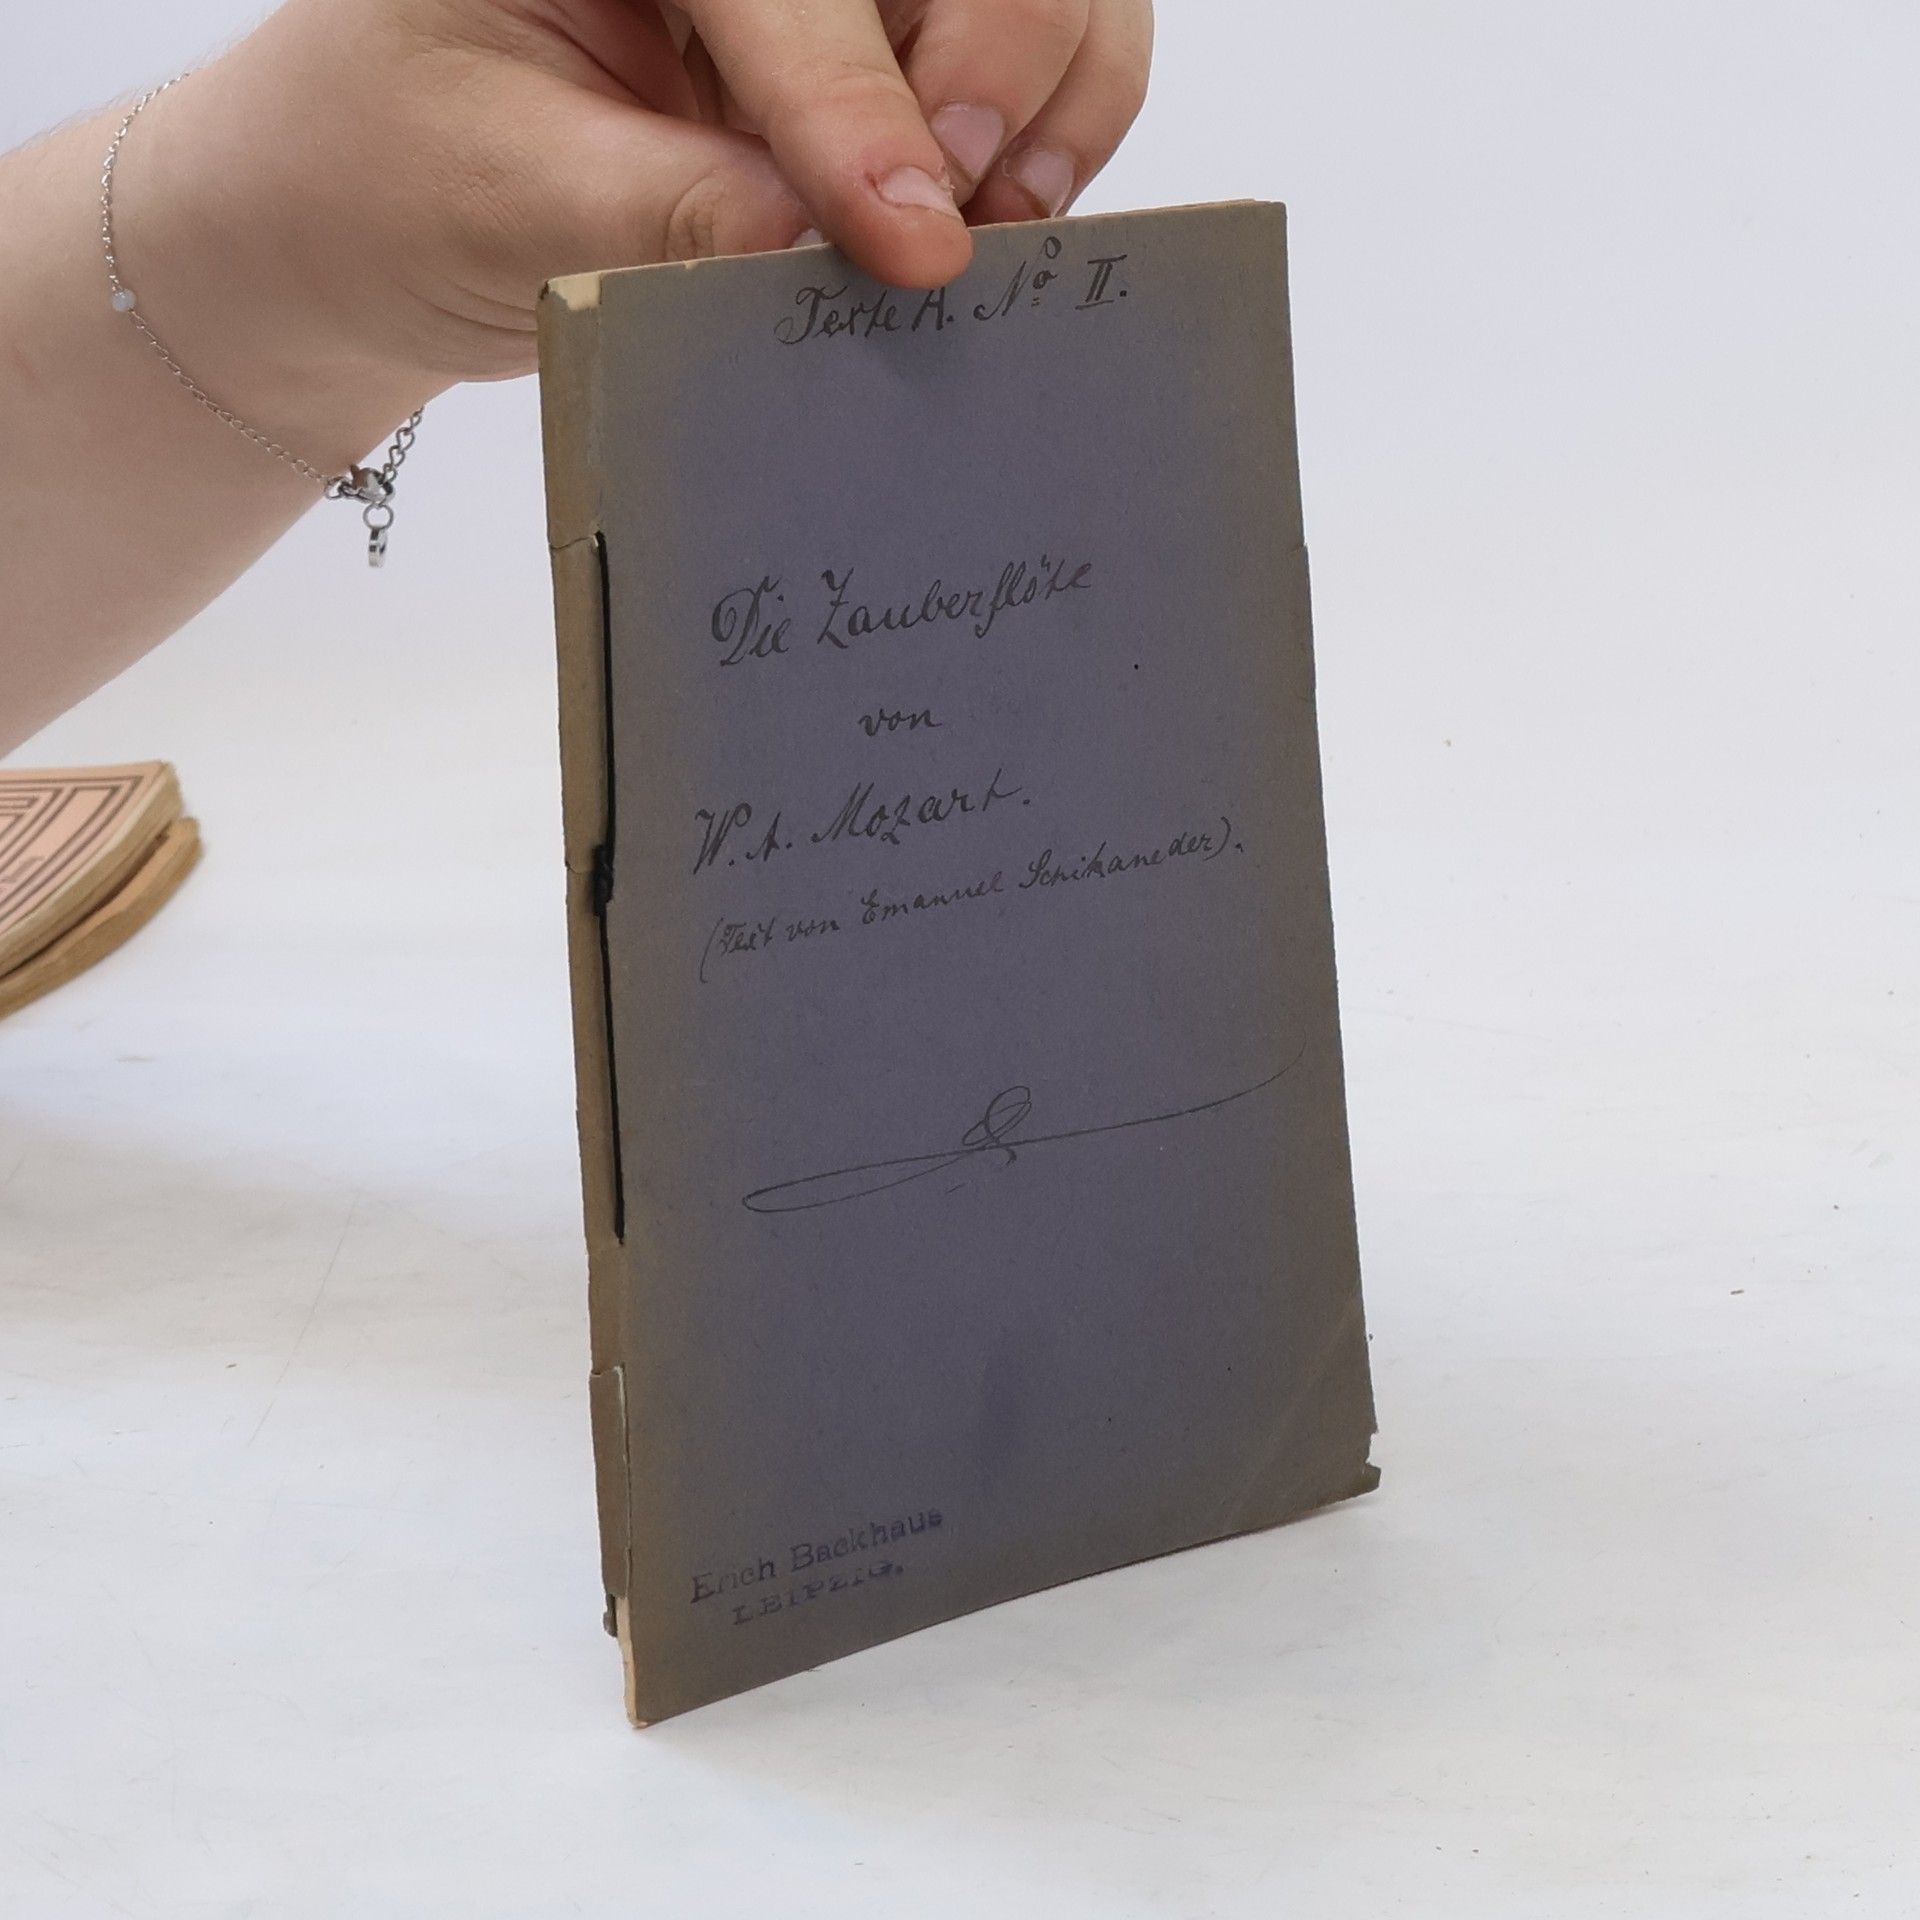 Texte A. No II.
Die Zauberflöte
von
W. A. Mozart.
(Text von Emanuel Schikaneder).
Erich Backhaus
LEIPZIG.